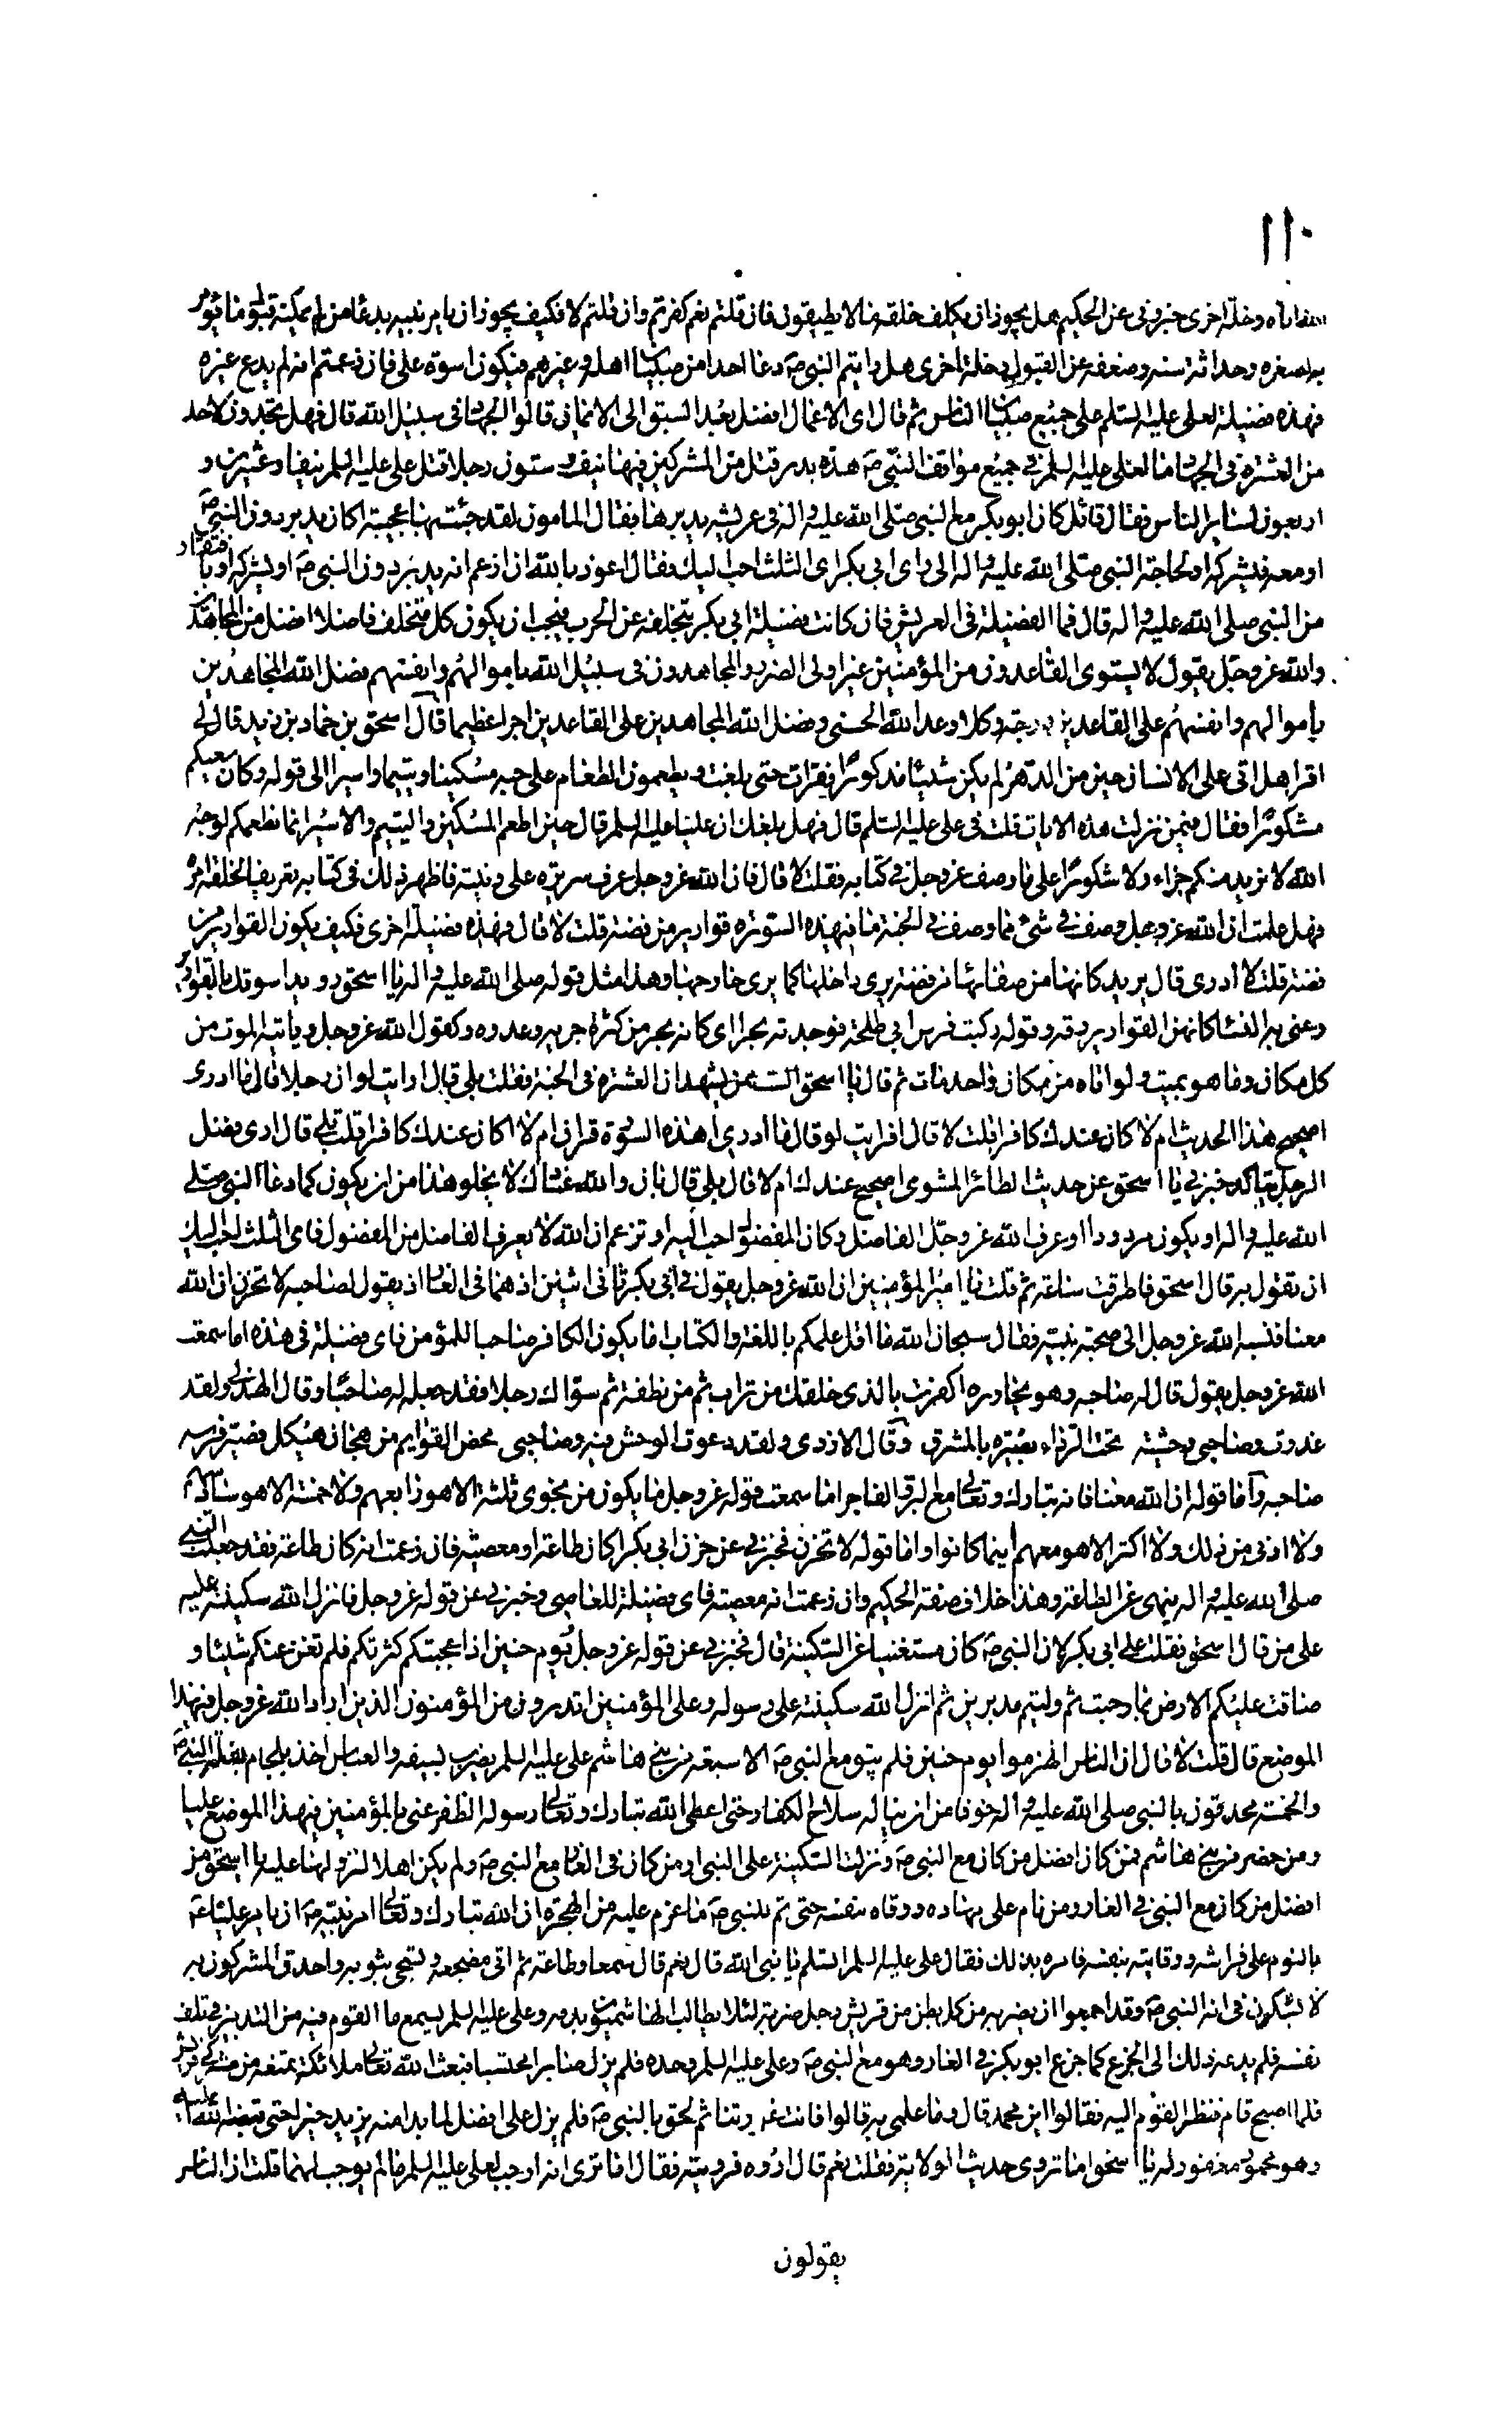 ١١٠
اياه وخلة اخرى خبرونى عن الحكيم هل يجوز ان يكلف خلقه ما لا يطيقون فان قلتم نعم كفرتم وان قلتم لا فكيف يجوز ان يامر نبيه بدعا من لم يمكنه قبول ما يؤمر
به لصغره وحداثة سنه وضعفه عن القبول وخلة اخرى هل رايتم النبى ص دعا احدا من صبيان اهله وغيرهم فيكون اسوة على فان زعمتم انه لم يدع غيره
فهذه فضيلة لعلى عليه السلم على جميع صبيان الناس ثم قال اى الاعمال افضل بعد السبق الى الايمان قالوا الجهاد فى سبيل الله قال فهل تجدون لاحد
من العشرة فى الجهاد ما لعلى عليه السلم فى جميع مواقف النبى ص هذه بدر قتل من المشركين فيها نيف وستون رجلا قتل على عليه السلم نيفا وعشرين و
اربعون لسائر الناس فقال قائل كان ابو بكر مع النبى صلى الله عليه واله فى عريشه يدبرها فقال المامون لقد جئت بها عجيبة اكان يدبر دون النبى ص
او معه فيشركه او لحاجة النبى صلى الله عليه واله الى راى ابى بكر اى الثلث احب اليك فقال اعوذ بالله ان ازعم انه يدبر دون النبى ص او يشركه او بافتقار
من النبى صلى الله عليه واله قال فما الفضيلة فى العريش فان كانت فضيلة ابى بكر بتخلفه عن الحرب فيجب ان يكون كل متخلف فاضلا افضل من المجاهدين
والله عز وجل يقول لا يستوى القاعدون من المؤمنين غير اولى الضرر والمجاهدون فى سبيل الله باموالهم وانفسهم فضل الله المجاهدين
بأموالهم وانفسهم على القاعدين درجة وكلا وعد الله الحسنى وفضل الله المجاهدين على القاعدين اجرا عظيما قال اسحق بن حماد بن زيد قال لى
اقرا هل اتى على الانسان حين من الدهر لم يكن شيئا مذكورا فقرات حتى بلغت ويطعمون الطعام على حبه مسكينا ويتيما واسيرا الى قوله وكان سعيكم
مشكورا فقال فيمن نزلت هذه الايات قلت فى على عليه السلم قال فهل بلغك ان عليا عليه السلم قال حين اطعم المسكين واليتيم والاسير انما نطعمكم لوجه
الله لا نريد منكم جزاء ولا شكورا على ما وصف عز وجل فى كتابه فقلت لا قال فان الله عز وجل عرف سريرة على ونيته فاظهر ذلك فى كتابه تعريفا لخلقه امره
فهل علمت ان الله عز وجل وصف فى شئ مما وصف فى الجنة ما فى هذه السورة قوارير من فضة قلت لا قال فهذه فضيلة اخرى فكيف يكون القوارير من
فضة قلت لا ادرى قال يريد كانها من صفائها من فضة يرى داخلها كما يرى خارجها وهذا مثل قوله صلى الله عليه واله يا اسحق رويدا سوقك بالقوارير
وعنى به النساء كانهن القوارير رقة وقوله ركبت فرس ابى طلحة فوجدته بحرا اى كانه بحر من كثرة جريه وعدوه وكقول الله عز وجل وياتيه الموت من
كل مكان وما هو بميت ولو اتاه من مكان واحد مات ثم قال يا اسحق الست ممن يشهد ان العشرة فى الجنة فقلت بلى قال ارايت لو ان رجلا قال ما ادرى
اصحيح هذا الحديث ام لا كان عندك كافرا قلت لا قال افرايت لو قال ما ادرى هذه السورة قران ام لا اكان عندك كافرا قلت بلى قال ارى فضل
الرجل يتاكد خبرنى يا اسحق عن حديث الطائر المشوى اصحيح عندك ام لا قال بلى قال بان والله عنادك لا يخلو هذا من ان يكون كما دعا النبى صلى
الله عليه واله او يكون مردودا او عرف الله عز وجل الفاضل وكان المفضول احب اليه او تزعم ان الله لا يعرف الفاضل من المفضول فاى الثلث احب اليك
ان تقول به قال اسحق فاطرقت ساعة ثم قلت يا امير المؤمنين ان الله عز وجل يقول فى ابى بكر ثانى اثنين اذ هما فى الغار اذ يقول لصاحبه لا تحزن ان الله
معنا فنسبه الله عز وجل الى صحبة نبيه فقال سبحان الله ما اقل علمكم باللغة والكتاب اما يكون الكافر صاحبا للمؤمن فاى فضيلة فى هذه اما سمعت
الله عز وجل يقول قال له صاحبه وهو يحاوره اكفرت بالذى خلقك من تراب ثم من نطفة ثم سواك رجلا فقد جعله له صاحبا وقال الهذلى ولقد
غدوت وصاحبى وحشية تحت الرداء بصيرة بالمشرق وقال الازدى ولقد دعوت الوحش فيه وصاحبى محض القوايم من هجان هيكل فصير فرسه
صاحبه واما قوله ان الله معنا فانه تبارك وتعالى مع البر والفاجر اما سمعت قوله عز وجل ما يكون من نجوى ثلثة الا هو رابعهم ولا خمسة الا هو سادسهم
ولا ادنى من ذلك ولا اكثر الا هو معهم اينما كانوا واما قوله لا تحزن فخبرنى عن حزن ابى بكر اكان طاعة او معصية فان زعمت انه كان طاعة فقد جعلت النبى
صلى الله عليه واله ينهى عن الطاعة وهذا خلاف صفة الحكيم وان زعمت انه معصية فاى فضيلة للعاصى وخبرنى عن قوله عز وجل فانزل الله سكينته عليه
على من قال اسحق فقلت على ابى بكر لان النبى ص كان مستغنيا عن السكينة قال فخبرنى عن قوله عز وجل يوم حنين اذ اعجبتكم كثرتكم فلم تغن عنكم شيئا و
ضاقت عليكم الارض بما رحبت ثم وليتم مدبرين ثم انزل الله سكينته على رسوله وعلى المؤمنين اتدرون من المؤمنون الذين اراد الله عز وجل فى هذا
الموضع قال قلت لا قال ان الناس انهزموا يوم حنين فلم يبق مع النبى ص الا سبعة من بنى هاشم على عليه السلم يضرب بسيفه والعباس اخذ بلجام بغلة النبى ص
والخمسة محدقون بالنبى صلى الله عليه واله خوفا من ان يناله سلاح الكفار حتى اعطى الله تبارك وتعالى رسوله الظفر عنى بالمؤمنين فى هذا الموضع عليا
ومن حضر من بنى هاشم فمن كان افضل من كان مع النبى ص ونزلت السكينة على النبى او من كان فى الغار مع النبى ص ولم يكن اهلا لنزولها عليه يا اسحق من
افضل من كان مع النبى فى الغار ومن نام على مهاده ووقاه بنفسه حتى تم للنبى ص ما عزم عليه من الهجرة ان الله تبارك وتعالى امر نبيه ص ان يامر عليا ع
بالنوم على فراشه ووقايته بنفسه فامره بذلك فقال على عليه السلم اتسلم يا نبى الله قال نعم قال سمعا وطاعة ثم اتى مضجعه وتسجى بثوبه واحدق المشركون به
لا يشكون فى انه النبى ص وقد اجمعوا ان يضربه من كل بطن من قريش رجل ضربة لئلا يطالب الهاشميون بدمه وعلى عليه السلم يسمع ما القوم فيه من التدبير فى تلف
نفسه فلم يدعه ذلك الى الجزع كما جزع ابو بكر فى الغار وهو مع النبى ص وعلى عليه السلم وحده فلم يزل صابرا محتسبا فبعث الله تعالى ملائكة تمنعه من مشركى قريش
فلما اصبح قام فنظر القوم اليه فقالوا اين محمد قال وما علمى به قالوا فانت غررتنا ثم لحق بالنبى ص فلم يزل على افضل لما بدا منه يزيد خيرا حتى قبضه الله اليه
وهو محمود مغفور له يا اسحق اما تروى حديث الولاية فقلت نعم قال اروه فرويته فقال اما ترى انه اوجب لعلى عليه السلم ما لم يوجب لهما قلت ان الناس
يقولون